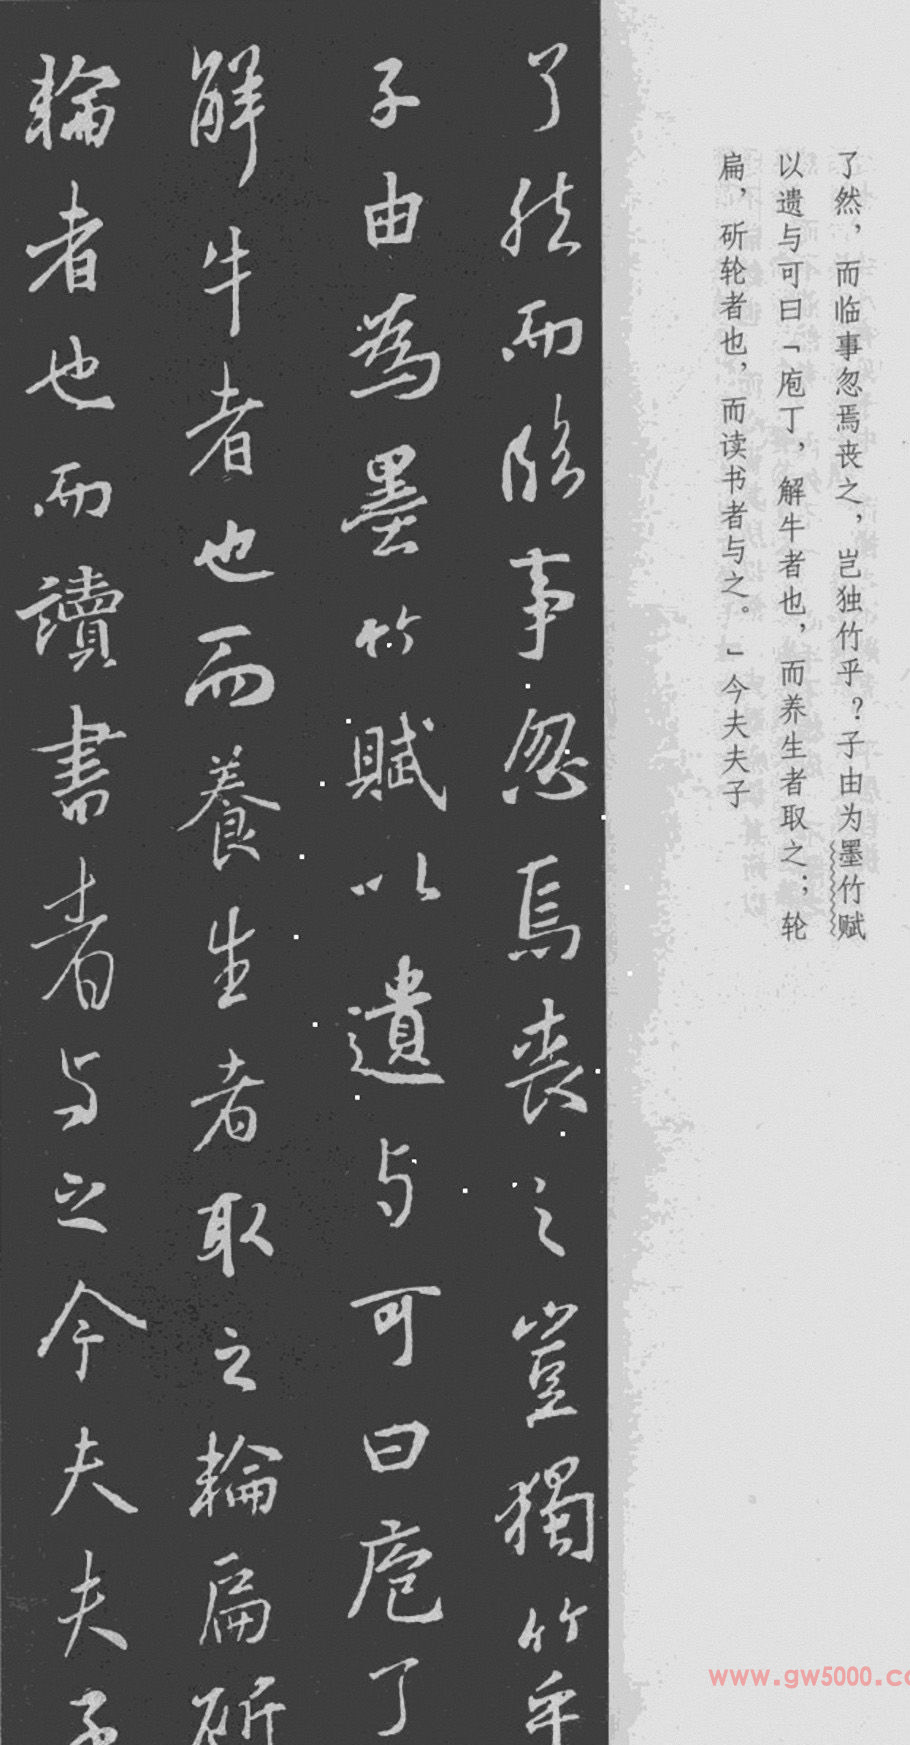 了然，而临事忽焉丧之，岂独竹乎？子由为墨竹赋
以遗与可曰「庖丁，解牛者也，而养生者取之；轮
扁，斫轮者也，而读书者与之。」今夫夫子
了然而臨事忽焉喪之豈獨竹乎
子由為墨竹賦以遺与可曰庖丁
解牛者也而養生者取之輪扁斫
輪者也而讀書者与之今夫夫子
www.gw5000.co